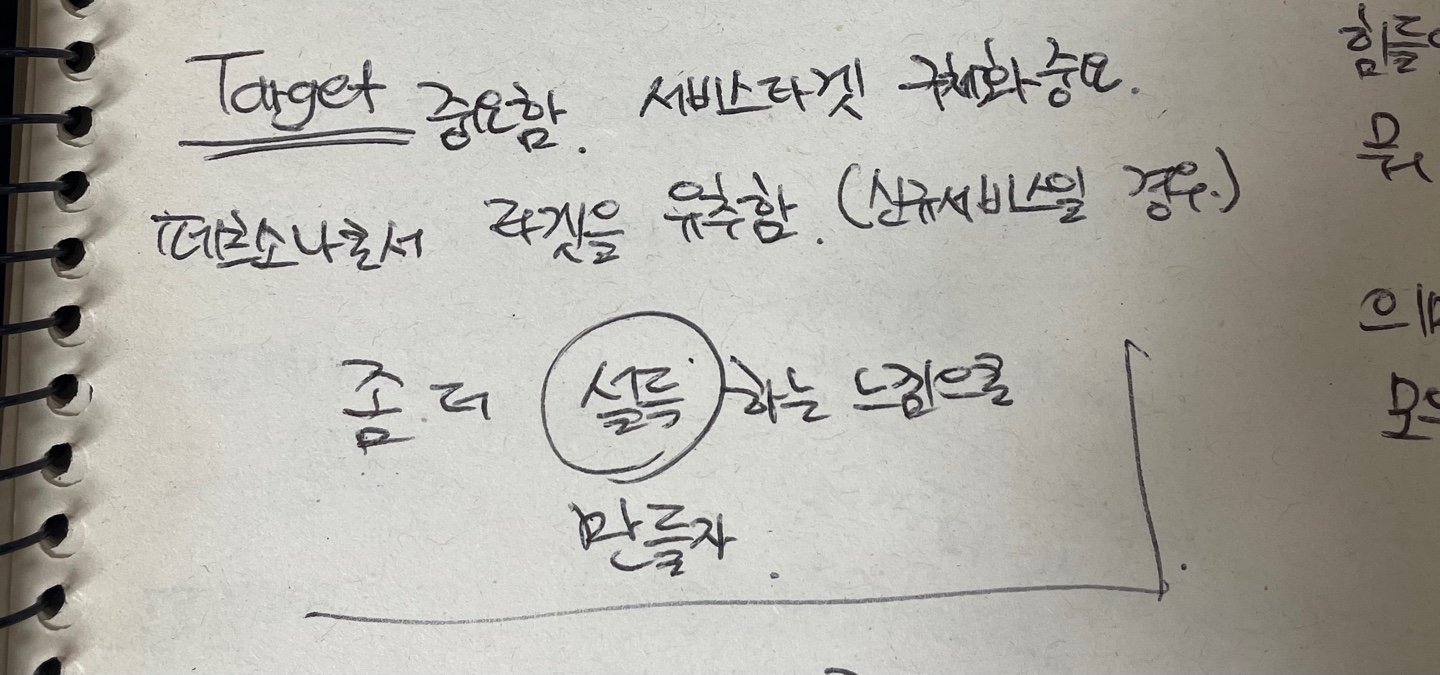 Target 중요함. 서비스타겟 구체화중요.
페르소나로서 타겟을 유추함. (신규서비스일 경우.)
좀 더 설득하는 느낌으로
만들자.
힘들
뭐